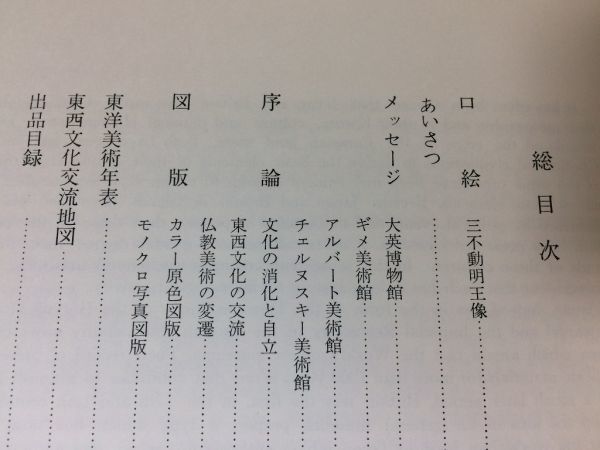 総目次
口絵 三不動明王像
あいさつ
メッセージ 大英博物館
ギメ美術館
アルバート美術館
チェルヌスキー美術館
序論 文化の消化と自立
東西文化の交流
仏教美術の変遷
図版 カラー原色図版
モノクロ写真図版
東洋美術年表
東西文化交流地図
出品目録